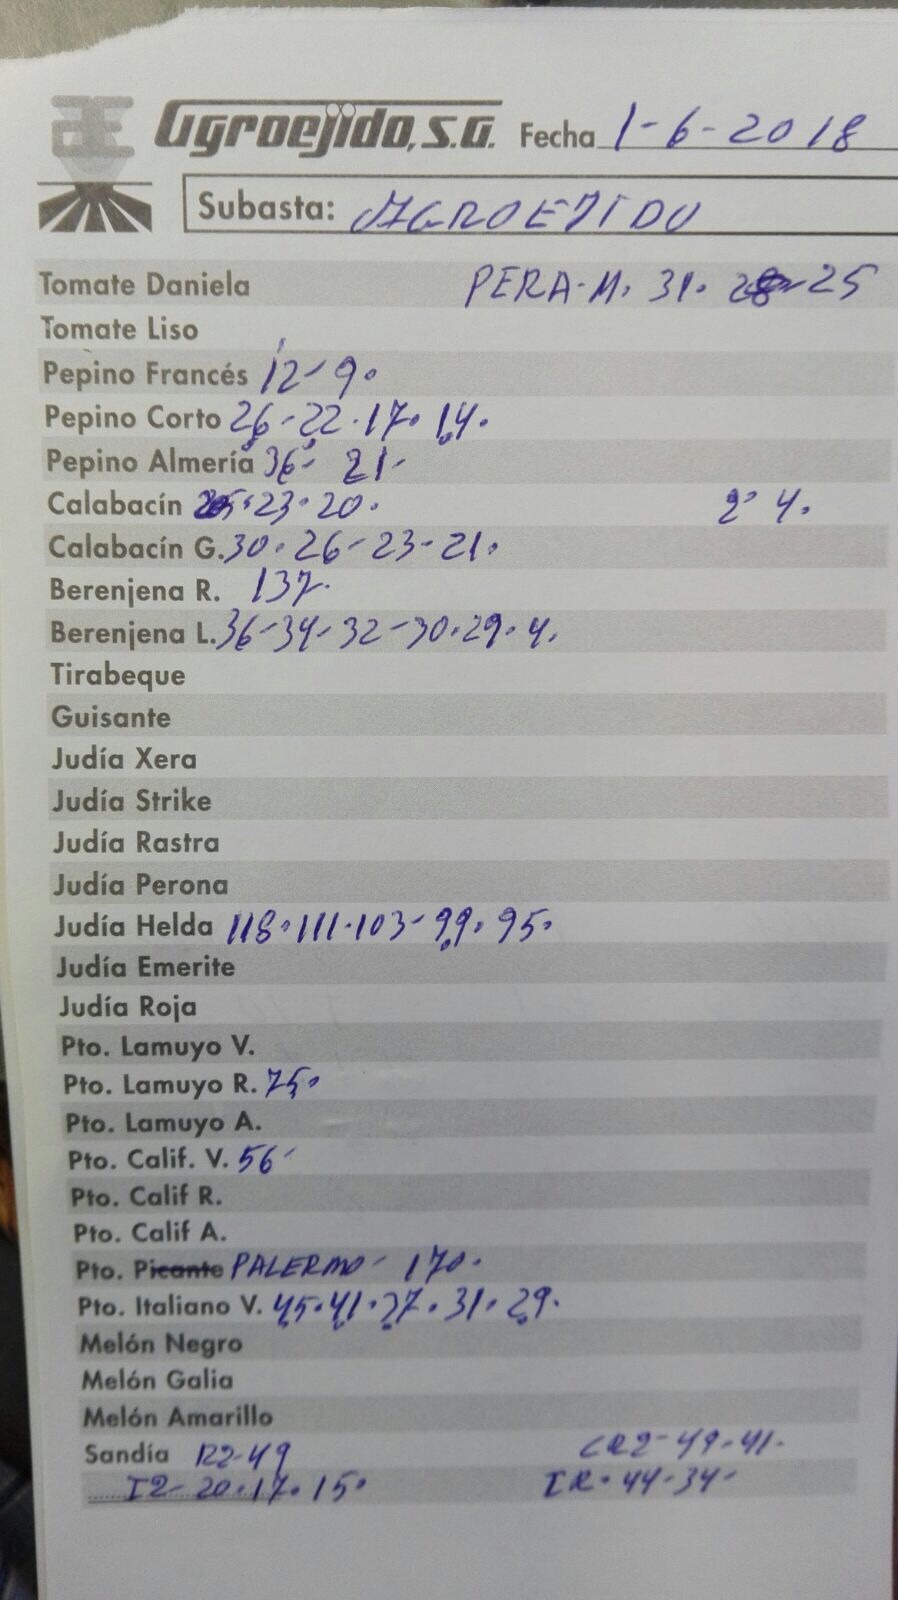 Agroejido, S.A. Fecha 1-6-2018
Subasta: AGROEJIDO
Tomate Daniela PERA-M. 31. 28-25
Tomate Liso
Pepino Francés 12-9.
Pepino Corto 26-22.17.14.
Pepino Almería 36- 21-
Calabacín 23.20. 2ª 4.
Calabacín G. 30.26-23-21.
Berenjena R. 137.
Berenjena L. 36-34-32-30.29.4.
Tirabeque
Guisante
Judía Xera
Judía Strike
Judía Rastra
Judía Perona
Judía Helda 118.111.103-99.95.
Judía Emerite
Judía Roja
Pto. Lamuyo V.
Pto. Lamuyo R. 75.
Pto. Lamuyo A.
Pto. Calif. V. 56-
Pto. Calif R.
Pto. Calif A.
Pto. Picante PALERMO- 170.
Pto. Italiano V. 45.41.27.31.29.
Melón Negro
Melón Galia
Melón Amarillo
Sandía R2-49 CR2-49-41-
I2-20.17.15. IR.44-34-